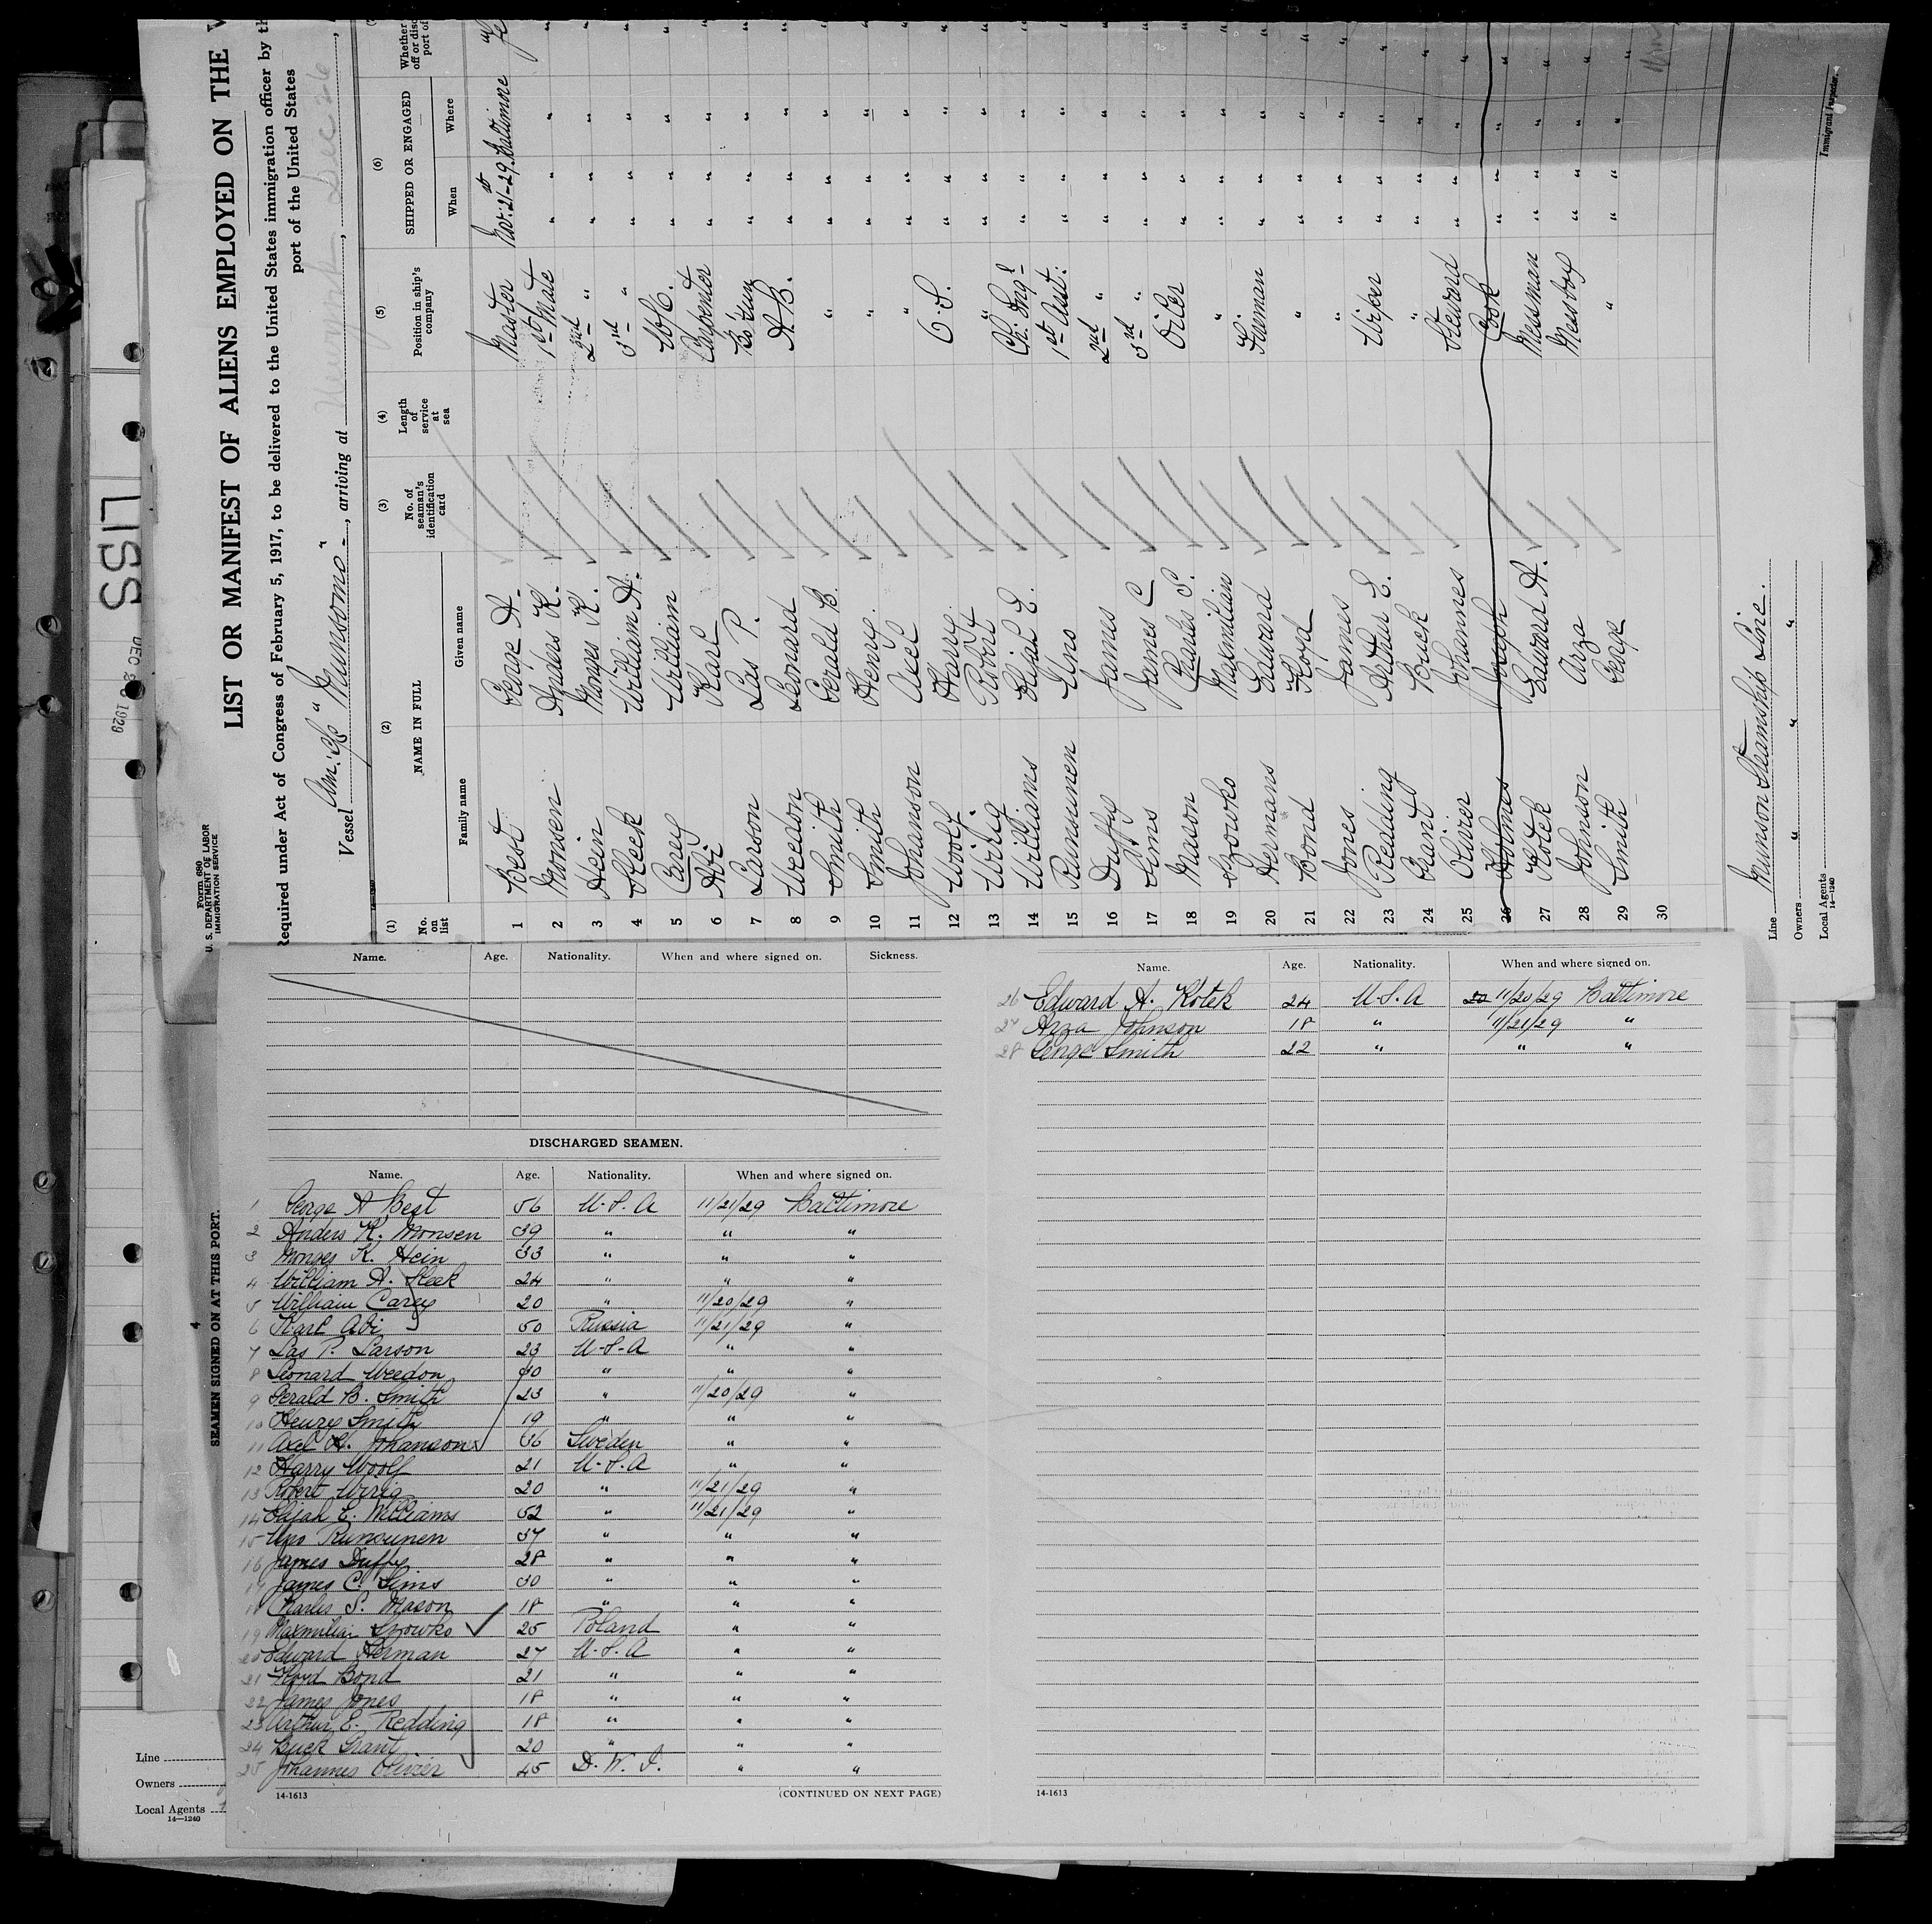 LISS
DEC 26 1929
Form 680
U. S. DEPARTMENT OF LABOR
IMMIGRATION SERVICE
LIST OR MANIFEST OF ALIENS EMPLOYED ON THE V
Required under Act of Congress of February 5, 1917, to be delivered to the United States immigration officer by th
port of the United States
Vessel Am. S/S "Munsomo", arriving at New York, Dec 26,
(1) (2) (3) (4) (5) (6)
No. on list NAME IN FULL No. of seaman's identification card Length of service at sea Position in ship's company SHIPPED OR ENGAGED Whether
Family name Given name When Where
1 Best George A. Master Nov. 21st-29. Baltimore
2 Monsen Anders K. 1st Mate " " "
3 Hein Monges K. 2nd " " " "
4 Sleek William A. 3rd " " " "
5 Carey William " " "
6 Abi Karl Carpenter " " "
7 Larson Las P. Bo'sun " " "
8 Weedon Leonard A. B. " " "
9 Smith Gerald B. " " " "
10 Smith Henry " " " "
11 Johanson Axel " " " "
12 Woolf Harry O. S. " " "
13 Wirig Robert " " " "
14 Williams Elijah E. Ch. Eng. " " "
15 Runsunen Uno 1st Asst. " " "
16 Duffy James 2nd " " " "
17 Sims James C 3rd " " " "
18 Mason Charles S. Oiler " " "
19 Srowko Maxmilian " " " "
20 Hermans Edward Fireman " " "
21 Bond Floyd " " " "
22 Jones James " " " "
23 Redding Arthur E. Wiper " " "
24 Grant Buck " " " "
25 Olivier Johannes Steward " " "
26 Holmes Joseph Cook " " "
27 Kotek Edward A. Messman " " "
28 Johnson Arza Messboy " " "
29 Smith George " " " "
30
Line Munson Steamship Line.
Owners " " "
Local Agents
14—1240
Immigrant Inspector.
Name. Age. Nationality. When and where signed on. Sickness.
4
SEAMEN SIGNED ON AT THIS PORT.
DISCHARGED SEAMEN.
Name. Age. Nationality. When and where signed on.
1 George A Best 56 U.S.A 11/21/29 Baltimore
2 Anders K. Monsen 39 " " "
3 Monges K. Hein 33 " " "
4 William A. Sleek 24 " " "
5 William Carey 20 " 11/20/29 "
6 Karl Abi 50 Russia 11/21/29 "
7 Las P. Larson 23 U.S.A " "
8 Leonard Weedon 30 " " "
9 Gerald B. Smith 23 " 11/20/29 "
10 Henry Smith 19 " " "
11 Axel H. Johanson 36 Sweden " "
12 Harry Woolf 21 U.S.A " "
13 Robert Wirig 20 " 11/21/29 "
14 Elijah E. Williams 52 " 11/21/29 "
15 Uno Runsunen 37 " " "
16 James Duffy 28 " " "
17 James C. Sims 30 " " "
18 Charles S. Mason 18 " " "
19 Maxmilian Srowko 25 Poland " "
20 Edward Herman 27 U.S.A " "
21 Floyd Bond 21 " " "
22 James Jones 18 " " "
23 Arthur E. Redding 18 " " "
24 Buck Grant 20 " " "
25 Johannes Olivier 45 D.W.I. " "
14-1613 (CONTINUED ON NEXT PAGE)
Name. Age. Nationality. When and where signed on.
26 Edward A. Kotek 24 U.S.A 11/20/29 Baltimore
27 Arza Johnson 18 " 11/21/29 "
28 George Smith 22 " " "
14-1613
Line
Owners
Local Agents
14—1240